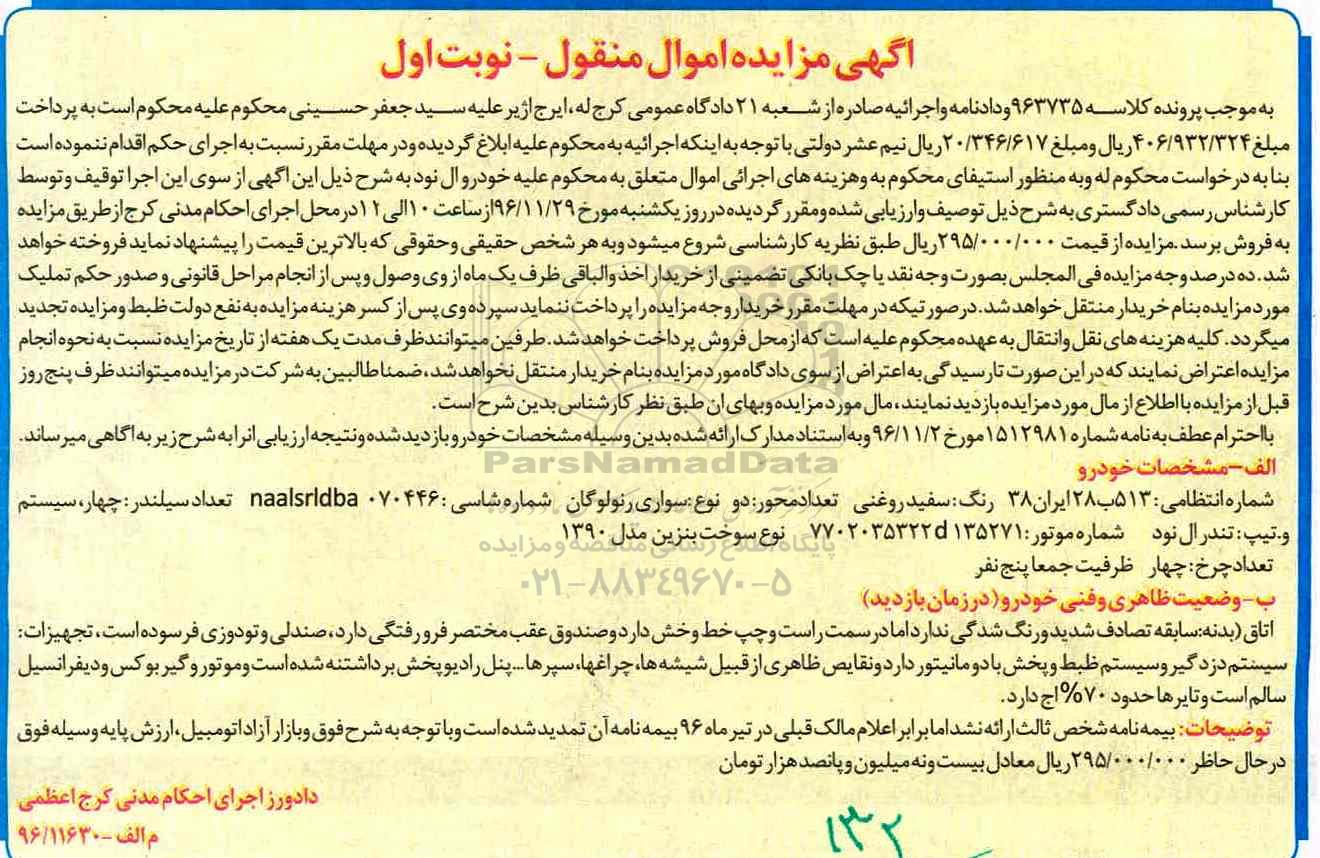 اگهی مزایده اموال منقول - نوبت اول
به موجب پرونده کلاسه ۹۶۳۷۳۵ ودادنامه واجرائیه صادره از شعبه ۲۱ دادگاه عمومی کرج له، ایرج اژیر علیه سید جعفر حسینی محکوم علیه محکوم است به پرداخت
مبلغ ۴۰۶/۹۳۲/۳۲۴ ریال ومبلغ ۲۰/۳۴۶/۶۱۷ ریال نیم عشر دولتی با توجه به اینکه اجرائیه به محکوم علیه ابلاغ گردیده ودر مهلت مقرر نسبت به اجرای حکم اقدام ننموده است
بنا به درخواست محکوم له وبه منظور استیفای محکوم به وهزینه های اجرائی اموال متعلق به محکوم علیه خودرو ال نود به شرح ذیل این اگهی از سوی این اجرا توقیف وتوسط
کارشناس رسمی دادگستری به شرح ذیل توصیف وارزیابی شده ومقرر گردیده در روز یکشنبه مورخ ۹۶/۱۱/۲۹ از ساعت ۱۰ الی ۱۲ در محل اجرای احکام مدنی کرج از طریق مزایده
به فروش برسد.مزایده از قیمت ۲۹۵/۰۰۰/۰۰۰ ریال طبق نظریه کارشناسی شروع میشود وبه هر شخص حقیقی وحقوقی که بالاترین قیمت را پیشنهاد نماید فروخته خواهد
شد. ده درصد وجه مزایده فی المجلس بصورت وجه نقد یا چک بانکی تضمینی از خریدار اخذ والباقی ظرف یک ماه از وی وصول وپس از انجام مراحل قانونی و صدور حکم تملیک
مورد مزایده بنام خریدار منتقل خواهد شد. در صورتیکه در مهلت مقرر خریدار وجه مزایده را پرداخت ننماید سپرده وی پس از کسر هزینه مزایده به نفع دولت ظبط ومزایده تجدید
میگردد. کلیه هزینه های نقل وانتقال به عهده محکوم علیه است که از محل فروش پرداخت خواهد شد. طرفین میتوانند ظرف مدت یک هفته از تاریخ مزایده نسبت به نحوه انجام
مزایده اعتراض نمایند که در این صورت تا رسیدگی به اعتراض از سوی دادگاه مورد مزایده بنام خریدار منتقل نخواهد شد، ضمنا طالبین به شرکت در مزایده میتوانند ظرف پنج روز
قبل از مزایده با اطلاع از مال مورد مزایده بازدید نمایند، مال مورد مزایده وبهای ان طبق نظر کارشناس بدین شرح است.
بااحترام عطف به نامه شماره ۱۵۱۲۹۸۱ مورخ ۹۶/۱۱/۲ وبه استناد مدارک ارائه شده بدین وسیله مشخصات خودرو بازدید شده ونتیجه ارزیابی انرا به شرح زیر به اگاهی میرساند.
ParsNamadData
الف-مشخصات خودرو
شماره انتظامی: ۵۱۳ب۲۸ ایران ۳۸ رنگ: سفید روغنی تعدادمحور: دو نوع: سواری رنولوگان شماره شاسی: naalsrldba ۰۷۰۴۴۶ تعداد سیلندر: چهار، سیستم
و.تیپ: تندر ال نود شماره موتور: ۱۳۵۲۷۱ ۷۷۰۲۰۳۵۳۲۲d نوع سوخت بنزین مدل ۱۳۹۰
پایگاه اطلاع رسانی مناقصه و مزایده
تعداد چرخ: چهار ظرفیت جمعا پنج نفر
۰۲۱-۸۸۳۴۹۶۷۰-۵
ب-وضعیت ظاهری وفنی خودرو (در زمان بازدید)
اتاق (بدنه: سابقه تصادف شدید ورنگ شدگی ندارد اما در سمت راست وچپ خط وخش دارد وصندوق عقب مختصر فرورفتگی دارد، صندلی وتودوزی فرسوده است، تجهیزات:
سیستم دزدگیر وسیستم ظبط وپخش با دو مانیتور دارد ونقایص ظاهری از قبیل شیشه ها، چراغها، سپرها...پنل رادیو پخش برداشتنه شده است وموتور وگیربوکس ودیفرانسیل
سالم است وتایرها حدود ۷۰% اج دارد.
توضیحات: بیمه نامه شخص ثالث ارائه نشد اما برابر اعلام مالک قبلی در تیر ماه ۹۶ بیمه نامه آن تمدید شده است وبا توجه به شرح فوق وبازار آزاد اتومبیل، ارزش پایه وسیله فوق
در حال حاظر ۲۹۵/۰۰۰/۰۰۰ ریال معادل بیست ونه میلیون وپانصد هزار تومان
دادورز اجرای احکام مدنی کرج اعظمی
م الف - ۹۶/۱۱۶۳۰
۱۳۲